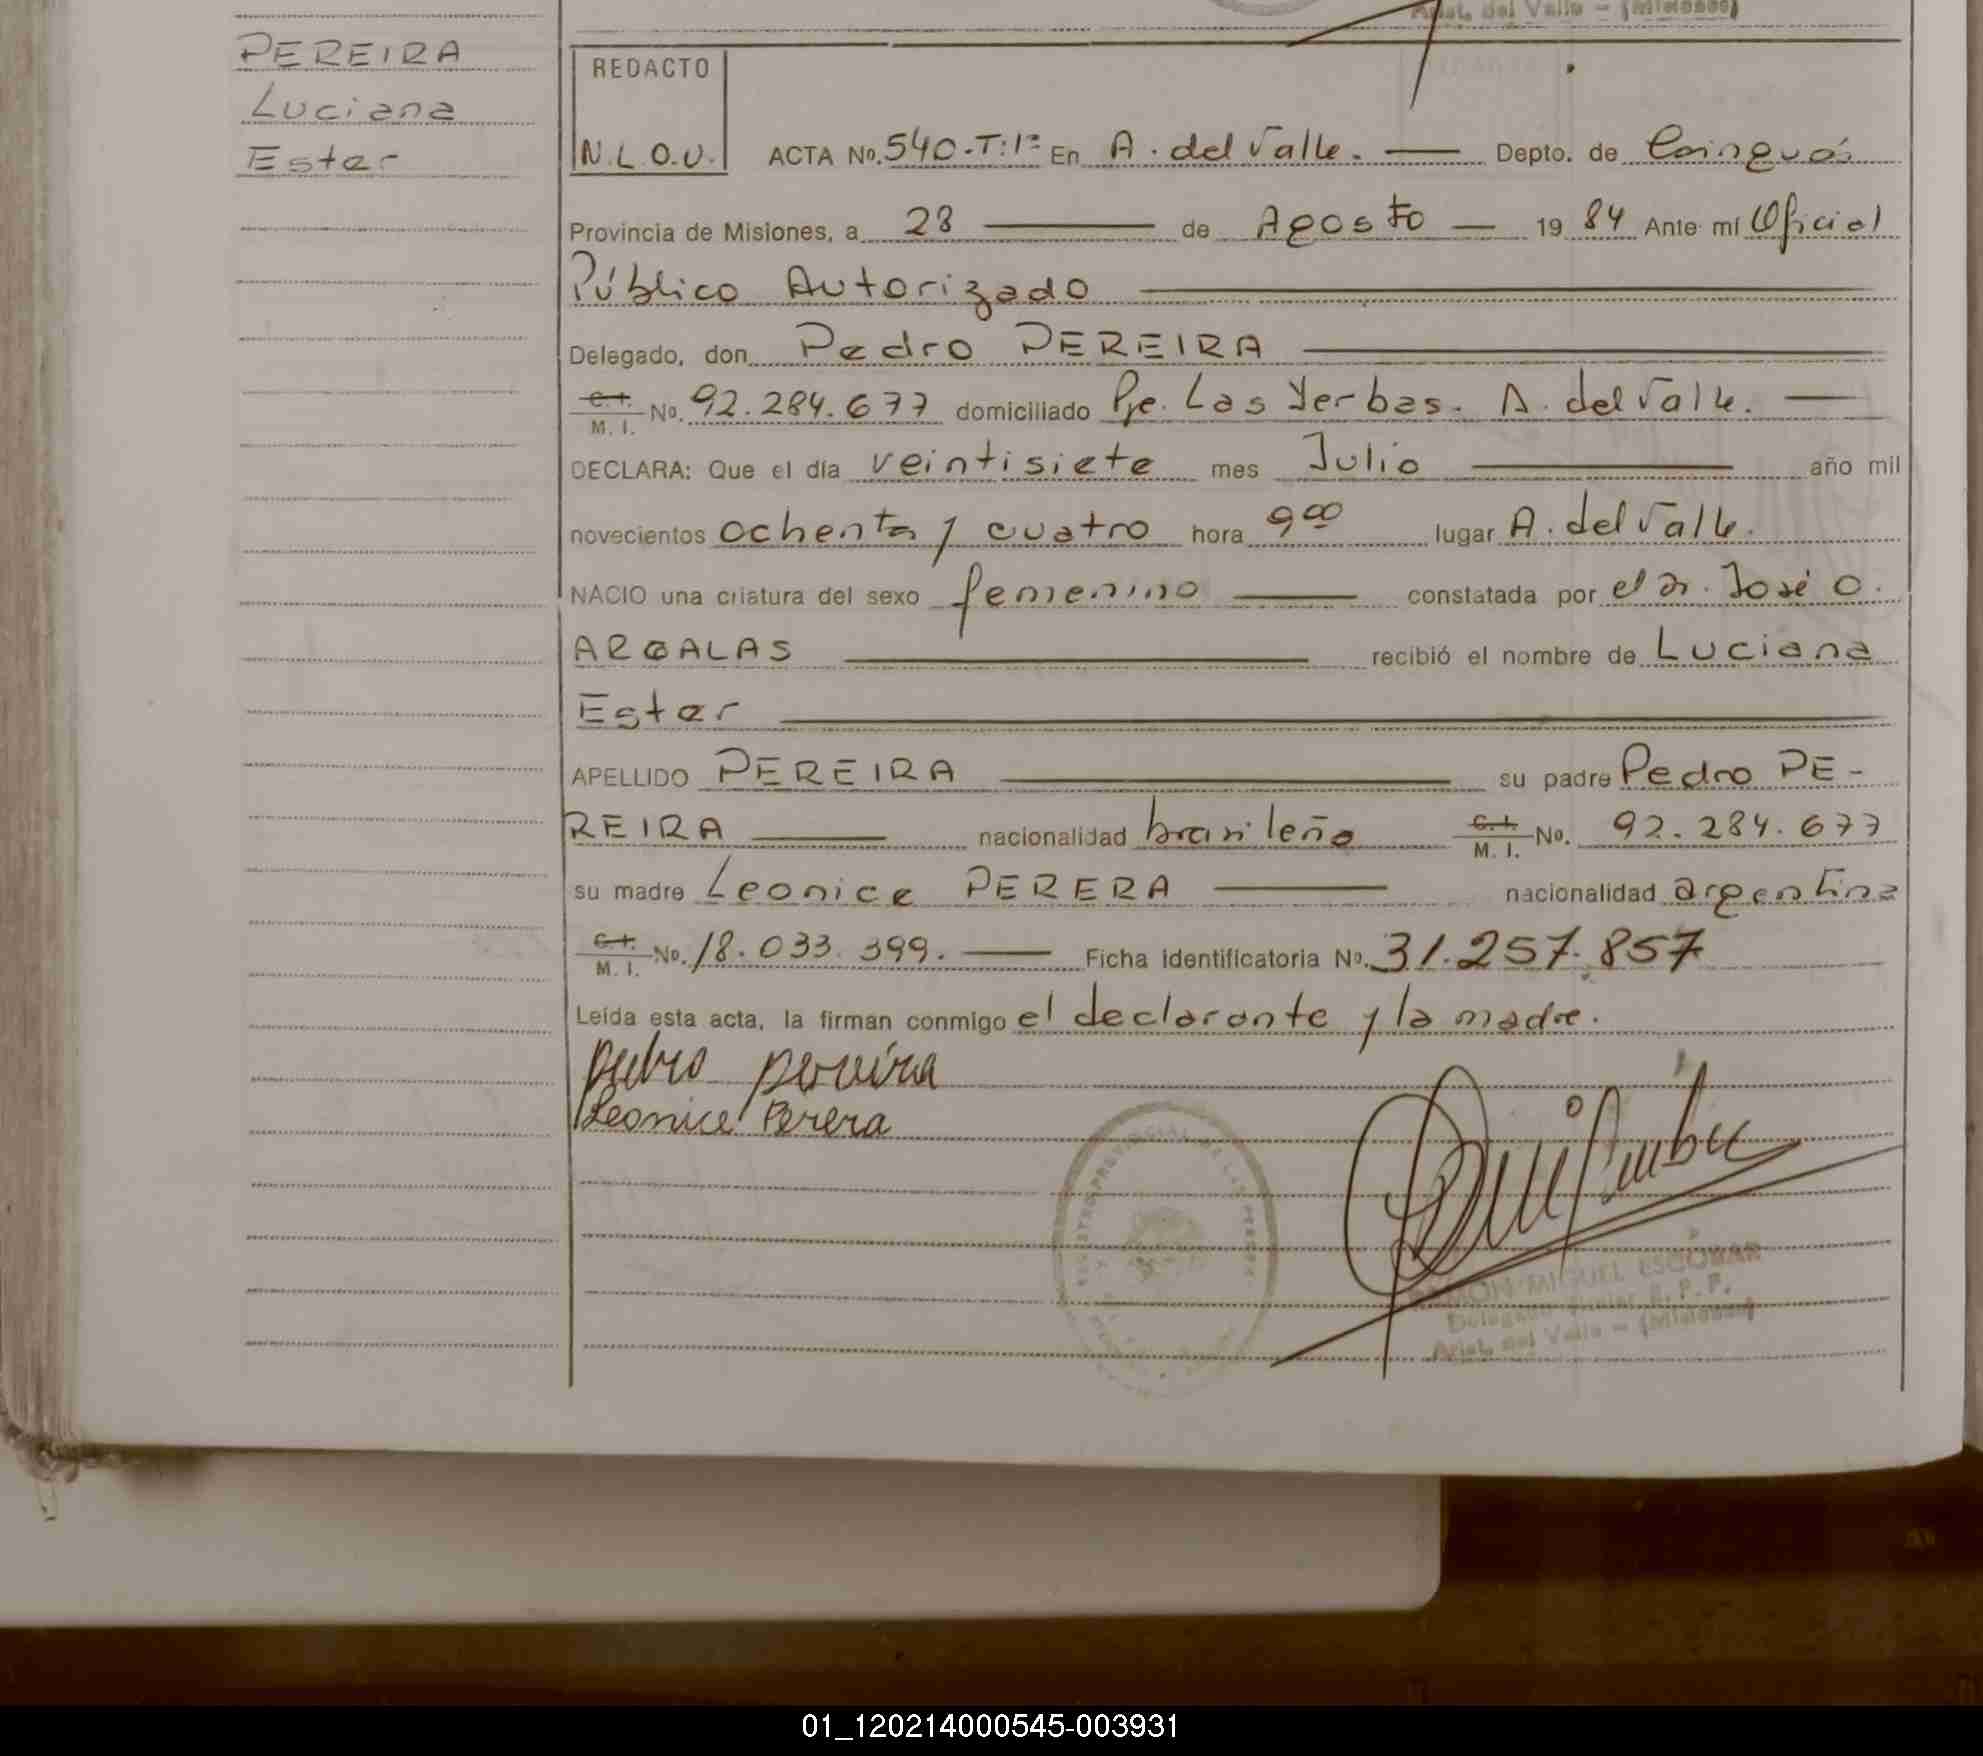 Arist. del Valle - (Misiones)
PEREIRA
Luciana
Ester
REDACTO
N.L.O.U.
ACTA No. 540-T:1º En A. del Valle. Depto. de Cainguás
Provincia de Misiones, a 28 de Agosto 1984 Ante mí Oficial
Público Autorizado
Delegado, don Pedro PEREIRA
C.I. M.I. No. 92.284.677 domiciliado Pje. Las Yerbas. A. del Valle.
DECLARA: Que el día veintisiete mes Julio año mil
novecientos ochenta y cuatro hora 9 00 lugar A. del Valle.
NACIO una criatura del sexo femenino constatada por el Dr. José O.
ARGALAS recibió el nombre de Luciana
Ester
APELLIDO PEREIRA su padre Pedro PE-
REIRA nacionalidad brasileña C.I. M.I. No. 92.284.677
su madre Leonice PERERA nacionalidad argentina
C.I. M.I. No. 18.033.399. Ficha identificatoria No. 31.257.857
Leída esta acta, la firman conmigo el declarante y la madre.
pedro pereira
Leonice Perera
REGISTRO PROVINCIAL DE LAS PERSONAS
RAMON MIGUEL ESCOBAR
Delegado Titular R.P.P.
Arist. del Valle - (Misiones)
01_120214000545-003931